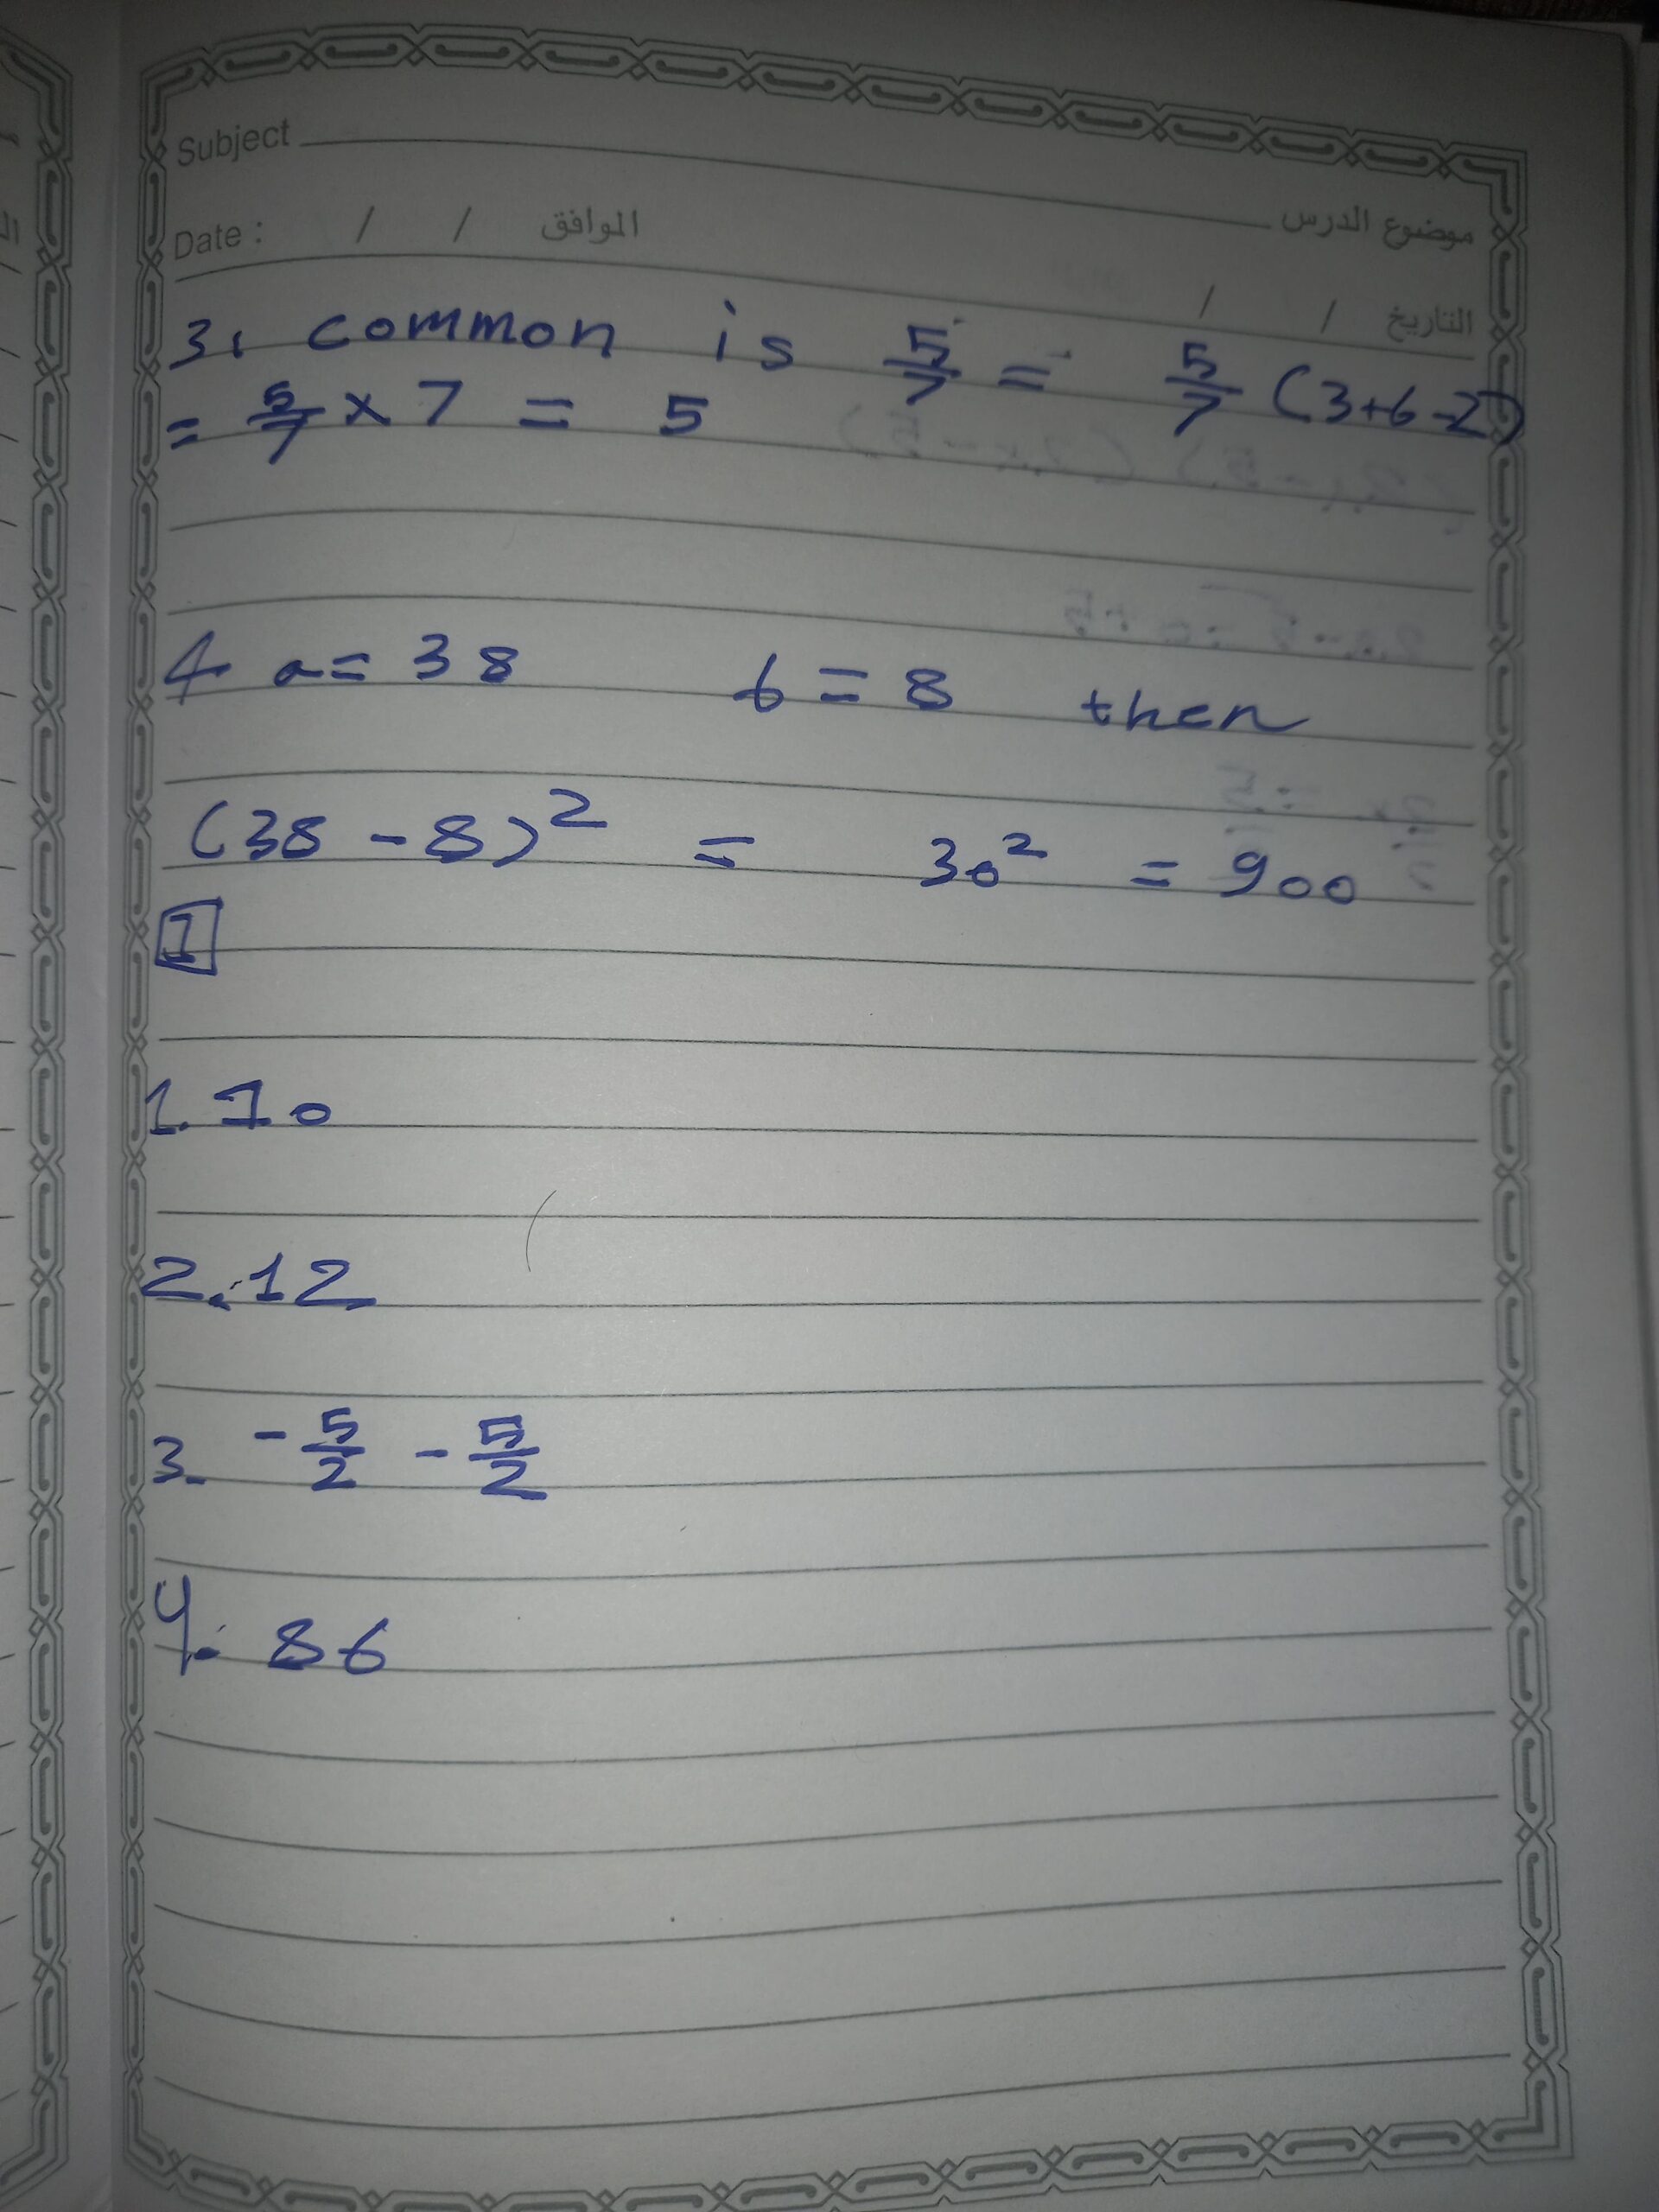 Subject
موضوع الدرس
Date : / / الموافق
/ / التاريخ
3. common is 5/7 = 5/7 (3+6-2)
= 5/7 × 7 = 5
4 a= 38 b = 8 then
(38 - 8)² = 30² = 900
1
1. 10
2. 12
3. - 5/2 - 5/2
4. 86